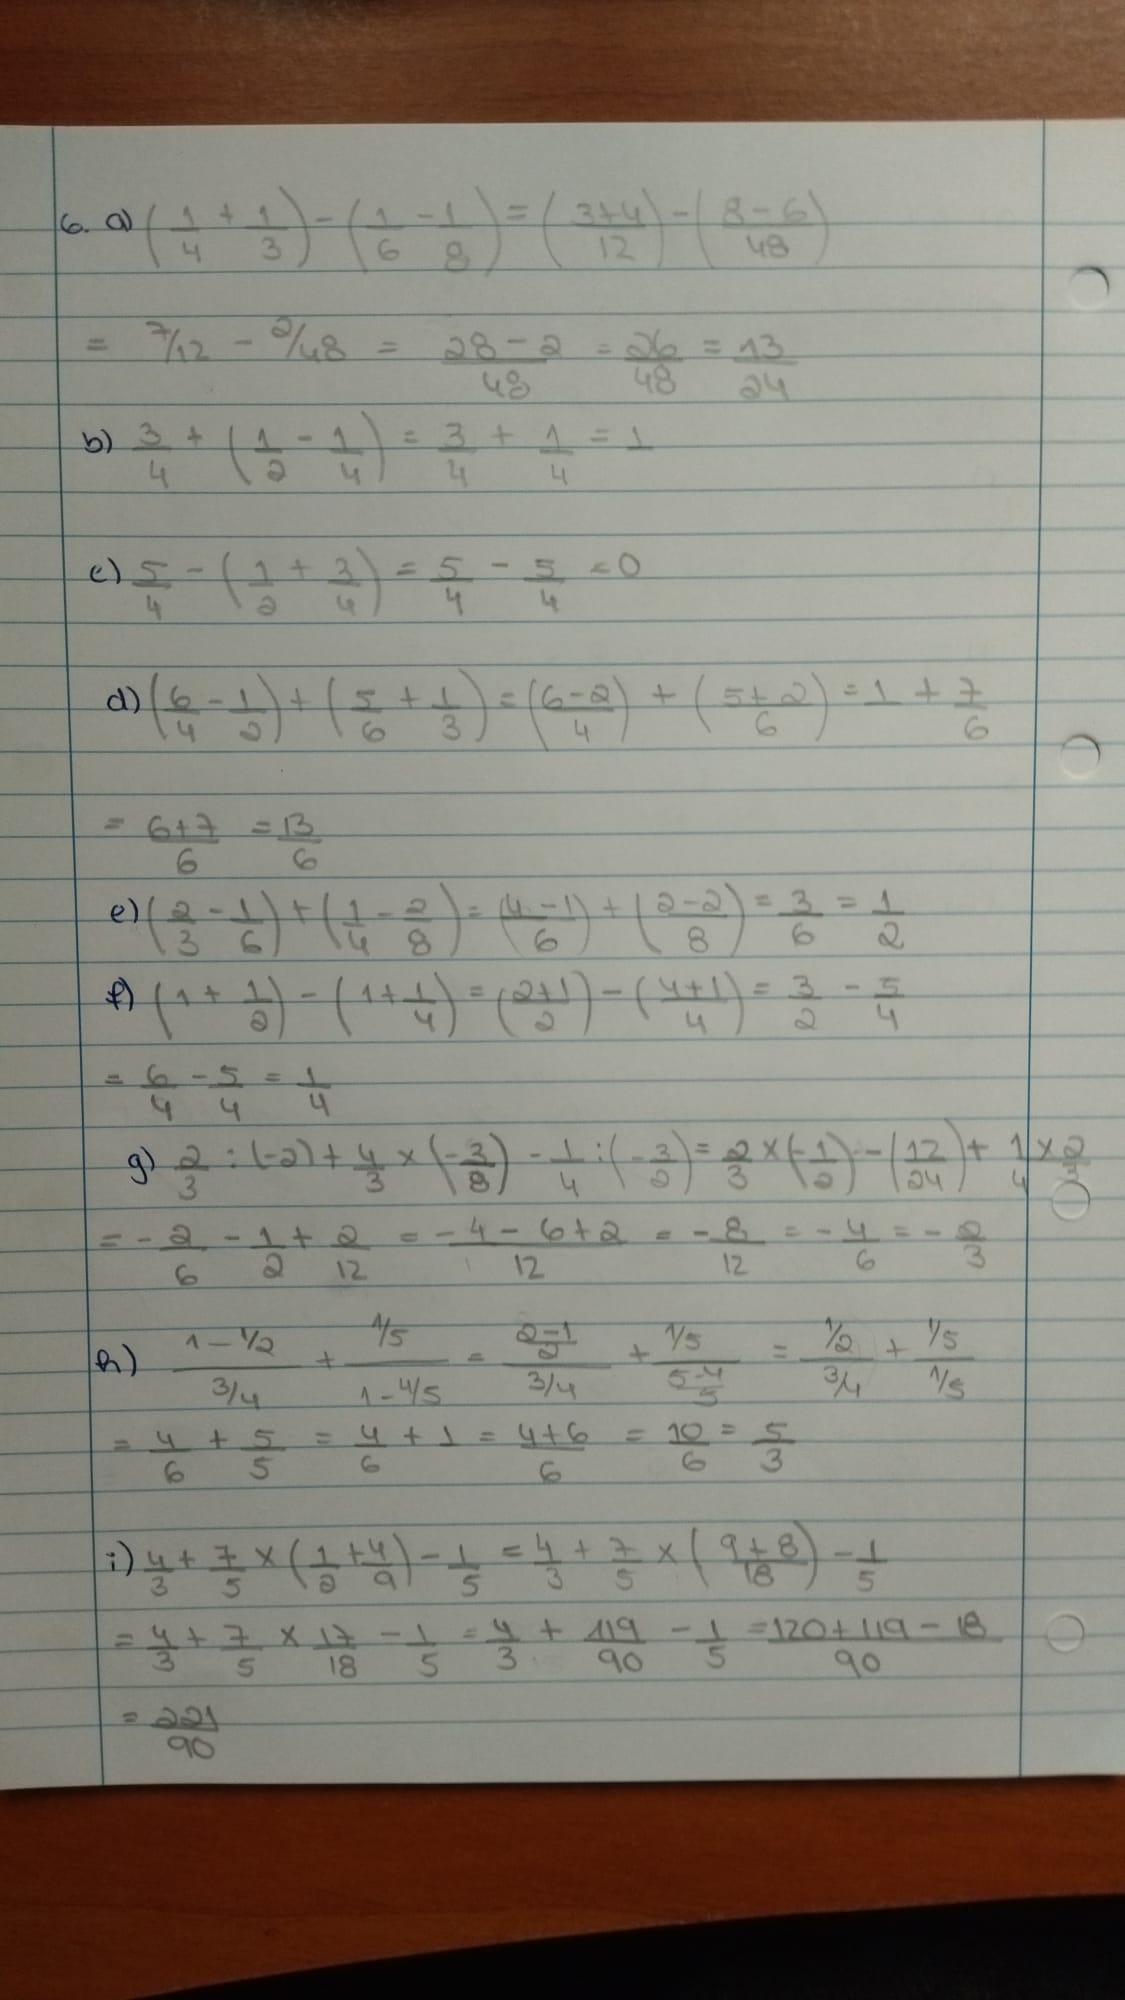 6. a) (1/4 + 1/3) - (1/6 - 1/8) = (3+4/12) - (8-6/48)
= 7/12 - 2/48 = 28-2/48 = 26/48 = 13/24
b) 3/4 + (1/2 - 1/4) = 3/4 + 1/4 = 1
c) 5/4 - (1/2 + 3/4) = 5/4 - 5/4 = 0
d) (6/4 - 1/2) + (5/6 + 1/3) = (6-2/4) + (5+2/6) = 1 + 7/6
= 6+7/6 = 13/6
e) (2/3 - 1/6) + (1/4 - 2/8) = (4-1/6) + (2-2/8) = 3/6 = 1/2
f) (1 + 1/2) - (1 + 1/4) = (2+1/2) - (4+1/4) = 3/2 - 5/4
= 6/4 - 5/4 = 1/4
g) 2/3 : (-2) + 4/3 × (-3/8) - 1/4 : (-3/2) = 2/3 × (-1/2) - (12/24) + 1/4 × 2/3
= - 2/6 - 1/2 + 2/12 = -4-6+2/12 = - 8/12 = - 4/6 = - 2/3
h) 1-1/2/3/4 + 1/5/1-4/5 = 2-1/2/3/4 + 1/5/5-4/5 = 1/2/3/4 + 1/5/1/5
= 4/6 + 5/5 = 4/6 + 1 = 4+6/6 = 10/6 = 5/3
i) 4/3 + 7/5 × (1/2 + 4/9) - 1/5 = 4/3 + 7/5 × (9+8/18) - 1/5
= 4/3 + 7/5 × 17/18 - 1/5 = 4/3 + 119/90 - 1/5 = 120+119-18/90
= 221/90